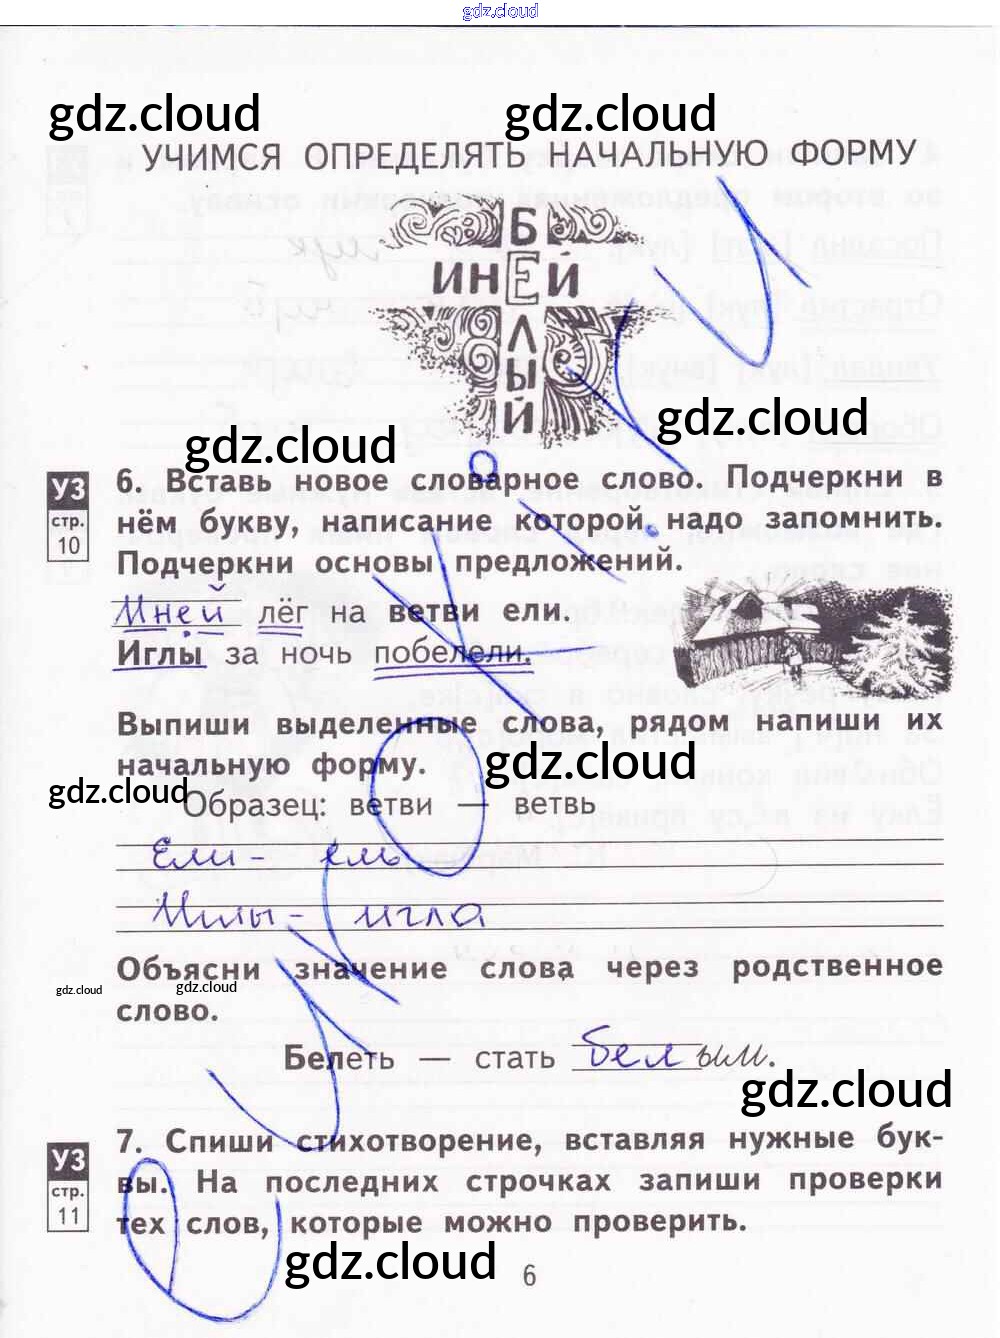 gdz.cloud
gdz.cloud gdz.cloud
УЧИМСЯ ОПРЕДЕЛЯТЬ НАЧАЛЬНУЮ ФОРМУ
Б
ИНЕЙ
Л
Ы
Й
gdz.cloud
gdz.cloud
УЗ
стр.
10
6. Вставь новое словарное слово. Подчеркни в
нём букву, написание которой надо запомнить.
Подчеркни основы предложений.
Иней лёг на ветви ели.
Иглы за ночь побелели.
Выпиши выделенные слова, рядом напиши их
начальную форму.
gdz.cloud
gdz.cloud
Образец: ветви — ветвь
Ели - ель
Иглы - игла
Объясни значение слова через родственное
слово.
gdz.cloud
gdz.cloud
Белеть — стать белым.
gdz.cloud
УЗ
стр.
11
7. Спиши стихотворение, вставляя нужные бук-
вы. На последних строчках запиши проверки
тех слов, которые можно проверить.
gdz.cloud
6